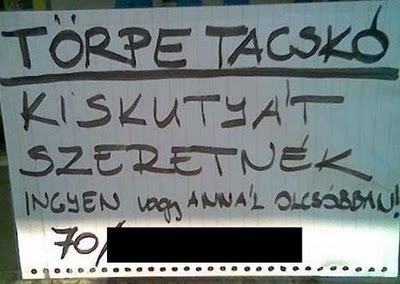 TÖRPE TACSKÓ
KISKUTYÁT
SZERETNÉK
INGYEN vagy ANNÁL OLCSÓBBAN!
70/